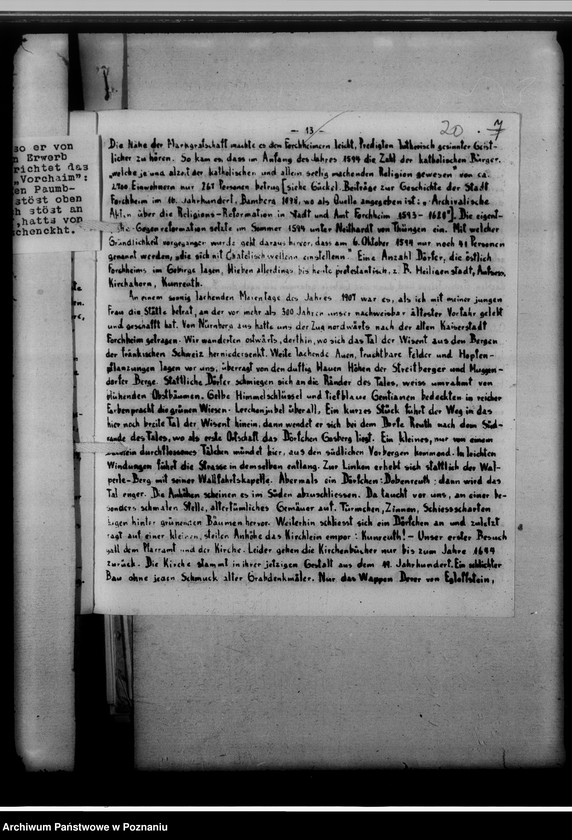 20 . 7
— 13 —
so er von
n Erwerb
richtet das
„Vorchaim":
en Paumb-
stöst oben
h stöst an
,hatts von
chenckht.
Die Nähe der Markgrafschaft machte es den Forchheimern leicht, Predigten lutherisch gesinnter Geist-
licher zu hören. So kam es dass im Anfang des Jahres 1594 die Zahl der katholischen Bürger,
„welche je und alzeit der katholischen und allein seelig machenden Religion gewesen" von ca.
2700 Einwohnern nur 265 Personen betrug [siehe Gückel. Beiträge zur Geschichte der Stadt
Forchheim im 16. Jahrhundert, Bamberg 1898, wo als Quelle angegeben ist: „Archivalische
Akten über die Religions-Reformation in Stadt und Amt Forchheim 1593-1628"]. Die eigent-
liche Gegenreformation setzte im Sommer 1594 unter Neithardt von Thüngen ein. Mit welcher
Gründlichkeit vorgegangen wurde geht daraus hervor, dass am 6. Oktober 1594 nur noch 91 Personen
genannt werden, „die sich mit einstellenn". Eine Anzahl Dörfer, die östlich
Forchheims im Gebirge lagen, blieben allerdings bis heute protestantisch, z. B. Heiligenstadt,
Kirchahorn, Kunreuth.
An einem sonnig lachenden Maientage des Jahres 1907 war es, als ich mit meiner jungen
Frau die Stätte betrat, an der vor mehr als 300 Jahren unser nachweisbar ältester Vorfahr gelebt
und geschafft hat. Von Nürnberg aus hatte uns der Zug nordwärts nach der alten Kaiserstadt
Forchheim getragen. Wir wanderten ostwärts, dorthin, wo sich das Tal der Wisent aus den Bergen
der fränkischen Schweiz herniedersenkt. Weite lachende Auen, fruchtbare Felder und Hopfen-
pflanzungen lagen vor uns, überragt von den duftig blauen Höhen der Streitberger und Muggen-
dorfer Berge. Stattliche Dörfer schmiegen sich an die Ränder des Tales, weiss umrahmt von
blühenden Obstbäumen. Gelbe Himmelschlüssel und tiefblaue Gentianen bedeckten in reicher
Farbenpracht die grünen Wiesen. Lerchenjubel überall. Ein kurzes Stück führt der Weg in das
hier noch breite Tal der Wisent hinein, dann wendet er sich bei dem Dorfe Reuth nach dem Süd-
rande des Tales, wo als erste Ortschaft das Dörfchen Gosberg liegt. Ein kleines, nur von einem
durchflossenes Tälchen mündet hier, aus den südlichen Vorbergen kommend. In leichten
Windungen führt die Strasse in demselben entlang. Zur Linken erhebt sich stattlich der Wal-
perle-Berg mit seiner Wallfahrtskapelle. Abermals ein Dörfchen: Dobenreuth: dann wird das
Tal enger. Die Anhöhen scheinen es im Süden abzuschliessen. Da taucht vor uns, an einer be-
sonders schmalen Stelle, altertümliches Gemäuer auf. Türmchen, Zinnen, Schiesscharten
lugen hinter grünenden Bäumen hervor. Weiterhin schliesst sich ein Dörfchen an und zuletzt
ragt auf einer kleinen, steilen Anhöhe das Kirchlein empor: Kunreuth! – Unser erster Besuch
galt dem Pfarramt und der Kirche. Leider gehen die Kirchenbücher nur bis zum Jahre 1699
zurück. Die Kirche stammt in ihrer jetzigen Gestalt aus dem 19. Jahrhundert. Ein schlichter
Bau ohne jeden Schmuck alter Grabdenkmäler. Nur das Wappen Derer von Egloffstein,
Archiwum Państwowe w Poznaniu